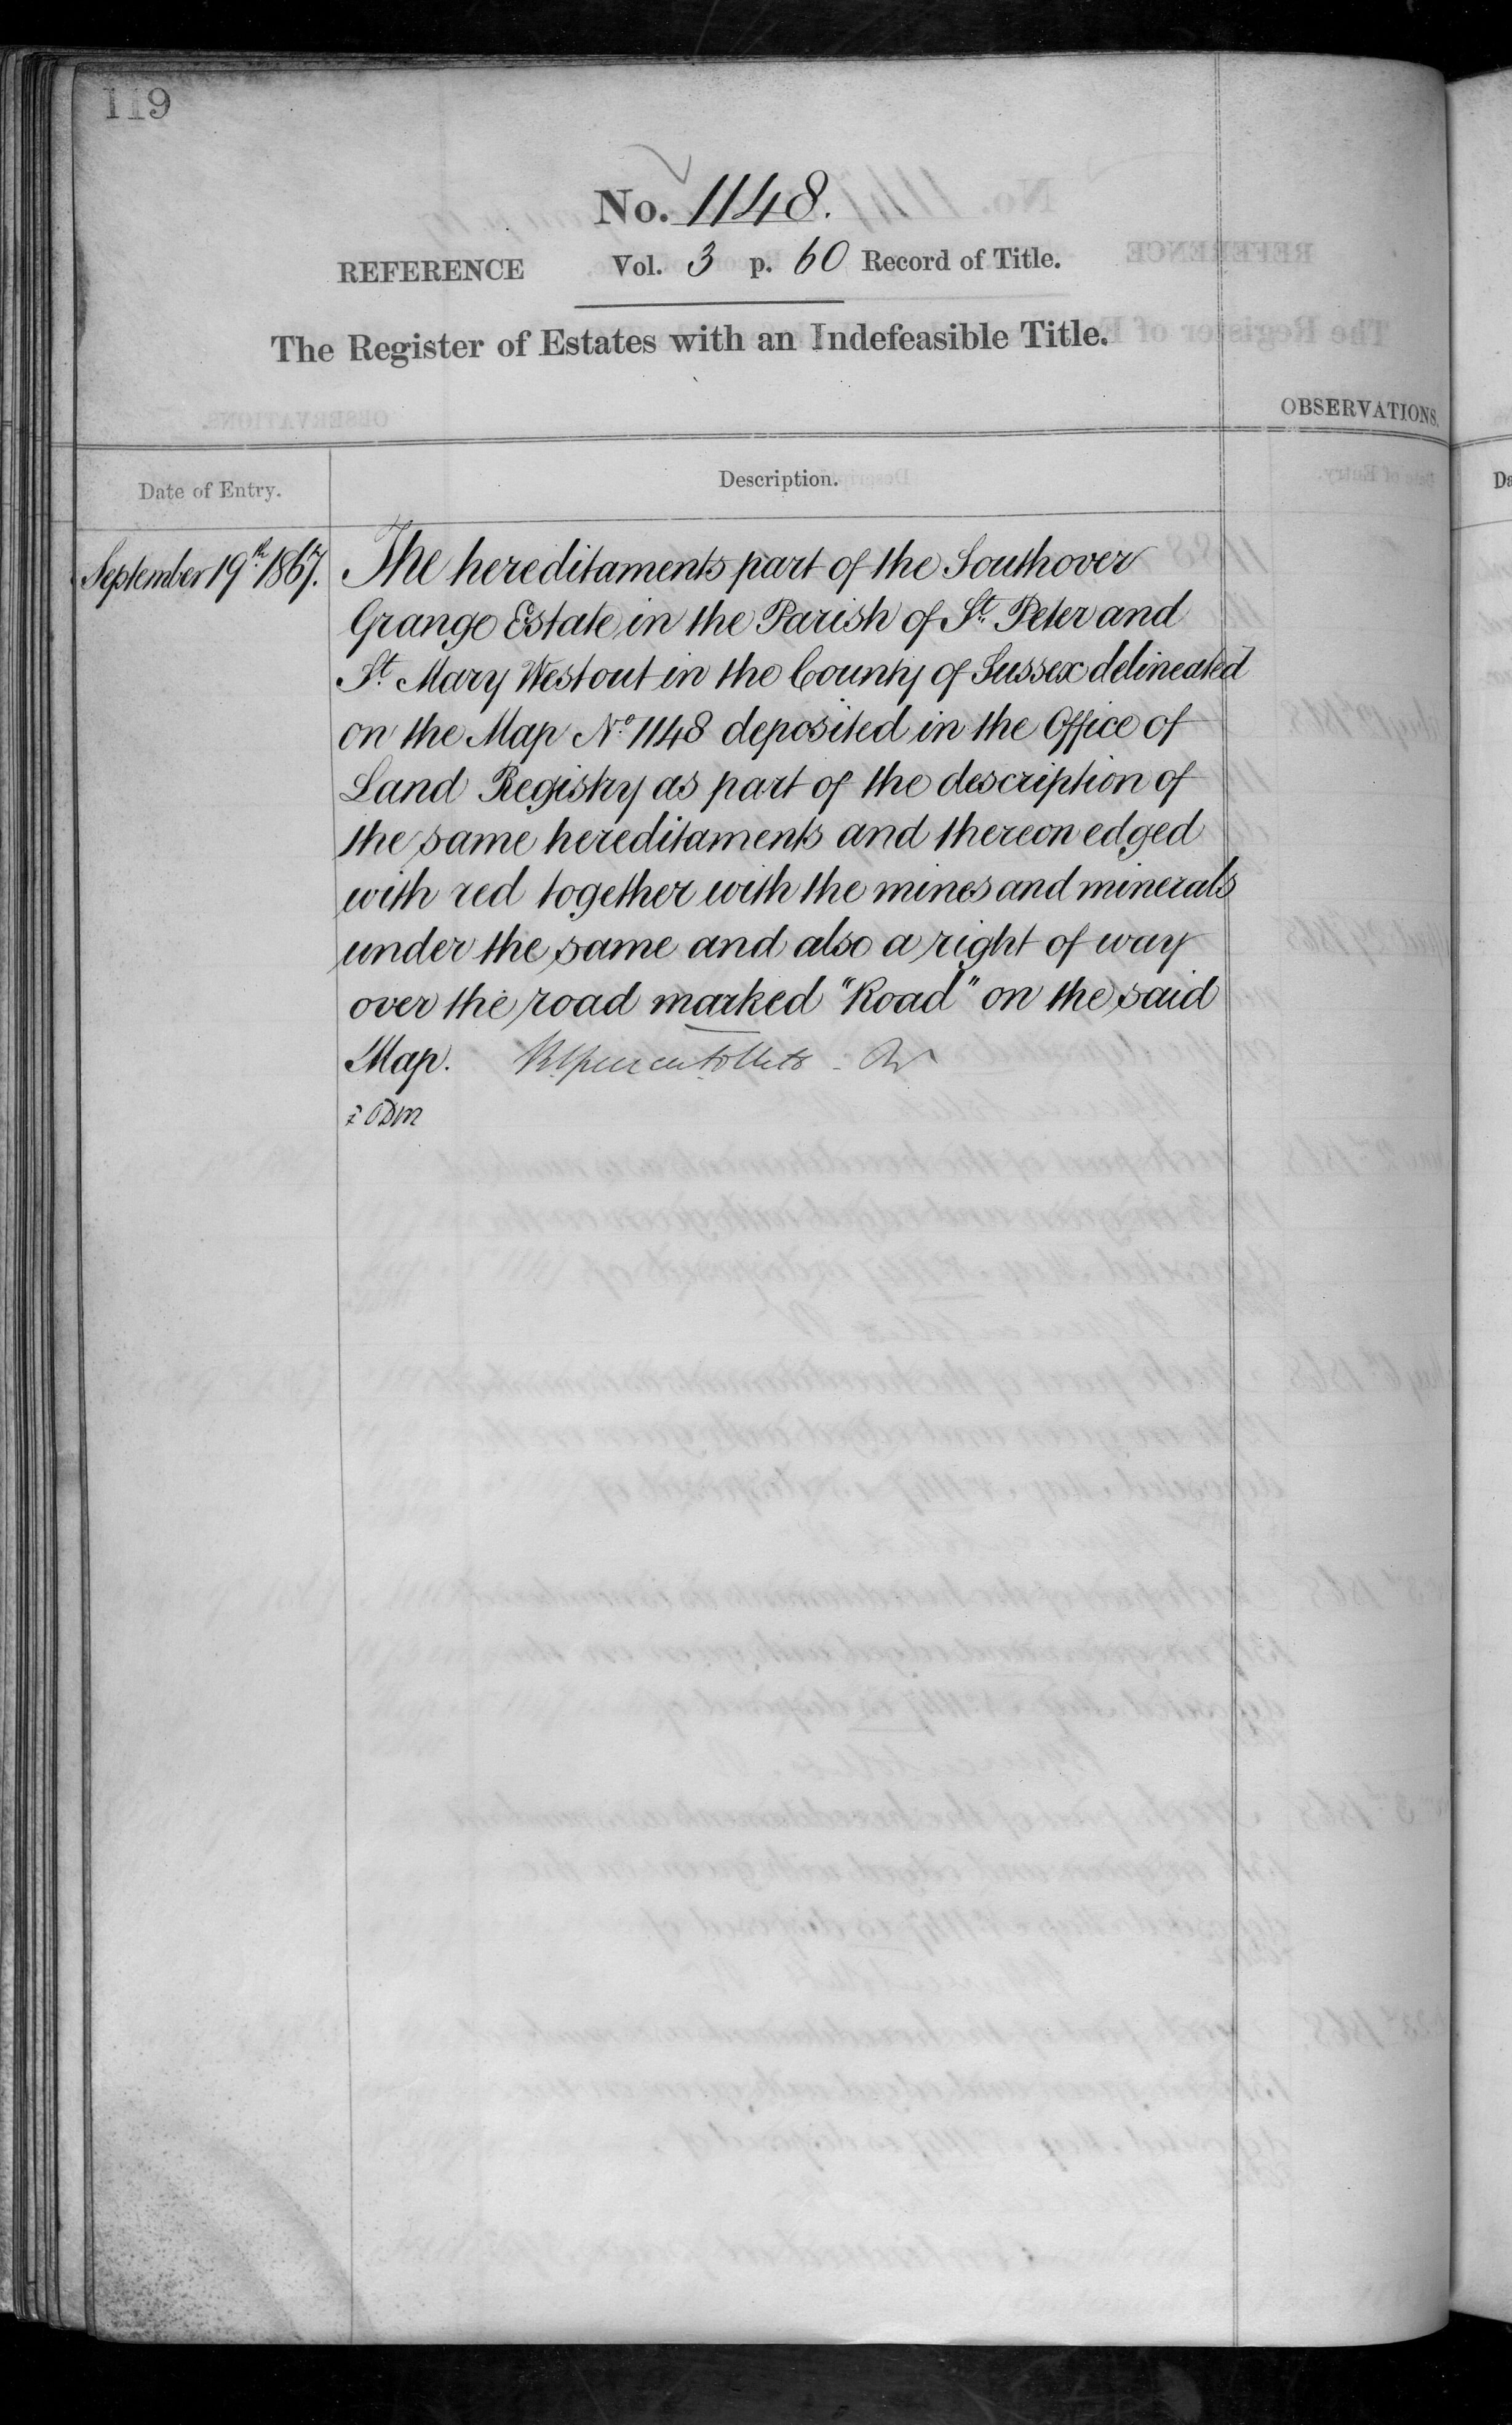 119
No. 1148.
REFERENCE Vol. 3 p. 60 Record of Title.
The Register of Estates with an Indefeasible Title.
OBSERVATIONS.
Date of Entry. Description.
September 19th 1867. The hereditaments part of the Southover
Grange Estate in the Parish of St. Peter and
St. Mary Westout in the County of Sussex delineated
on the Map No. 1148 deposited in the Office of
Land Registry as part of the description of
the same hereditaments and thereon edged
with red together with the mines and minerals
under the same and also a right of way
over the road marked "Road" on the said
Map.